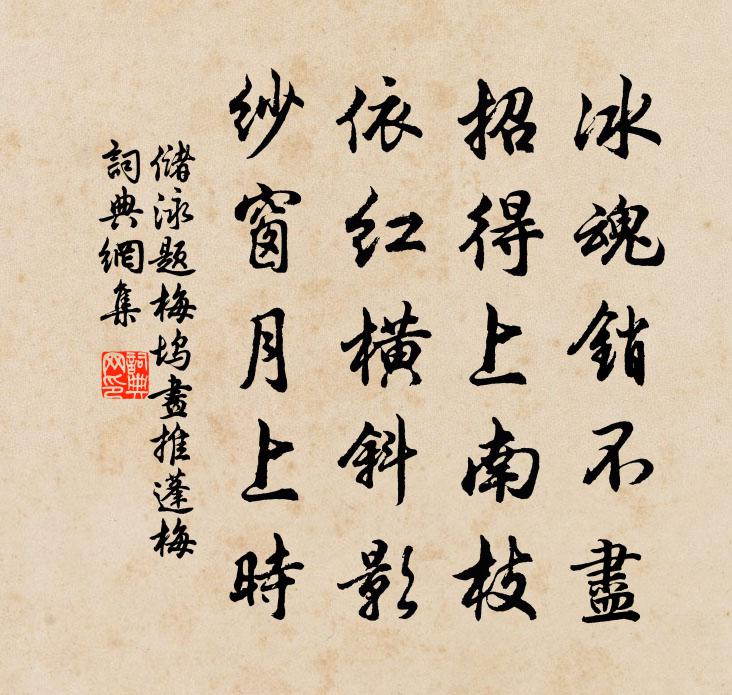 冰魂銷不盡
招得上南枝
依紅橫斜影
紗窗月上時
儲泳題梅塢畫推蓬梅
詞典網集
詞典网印